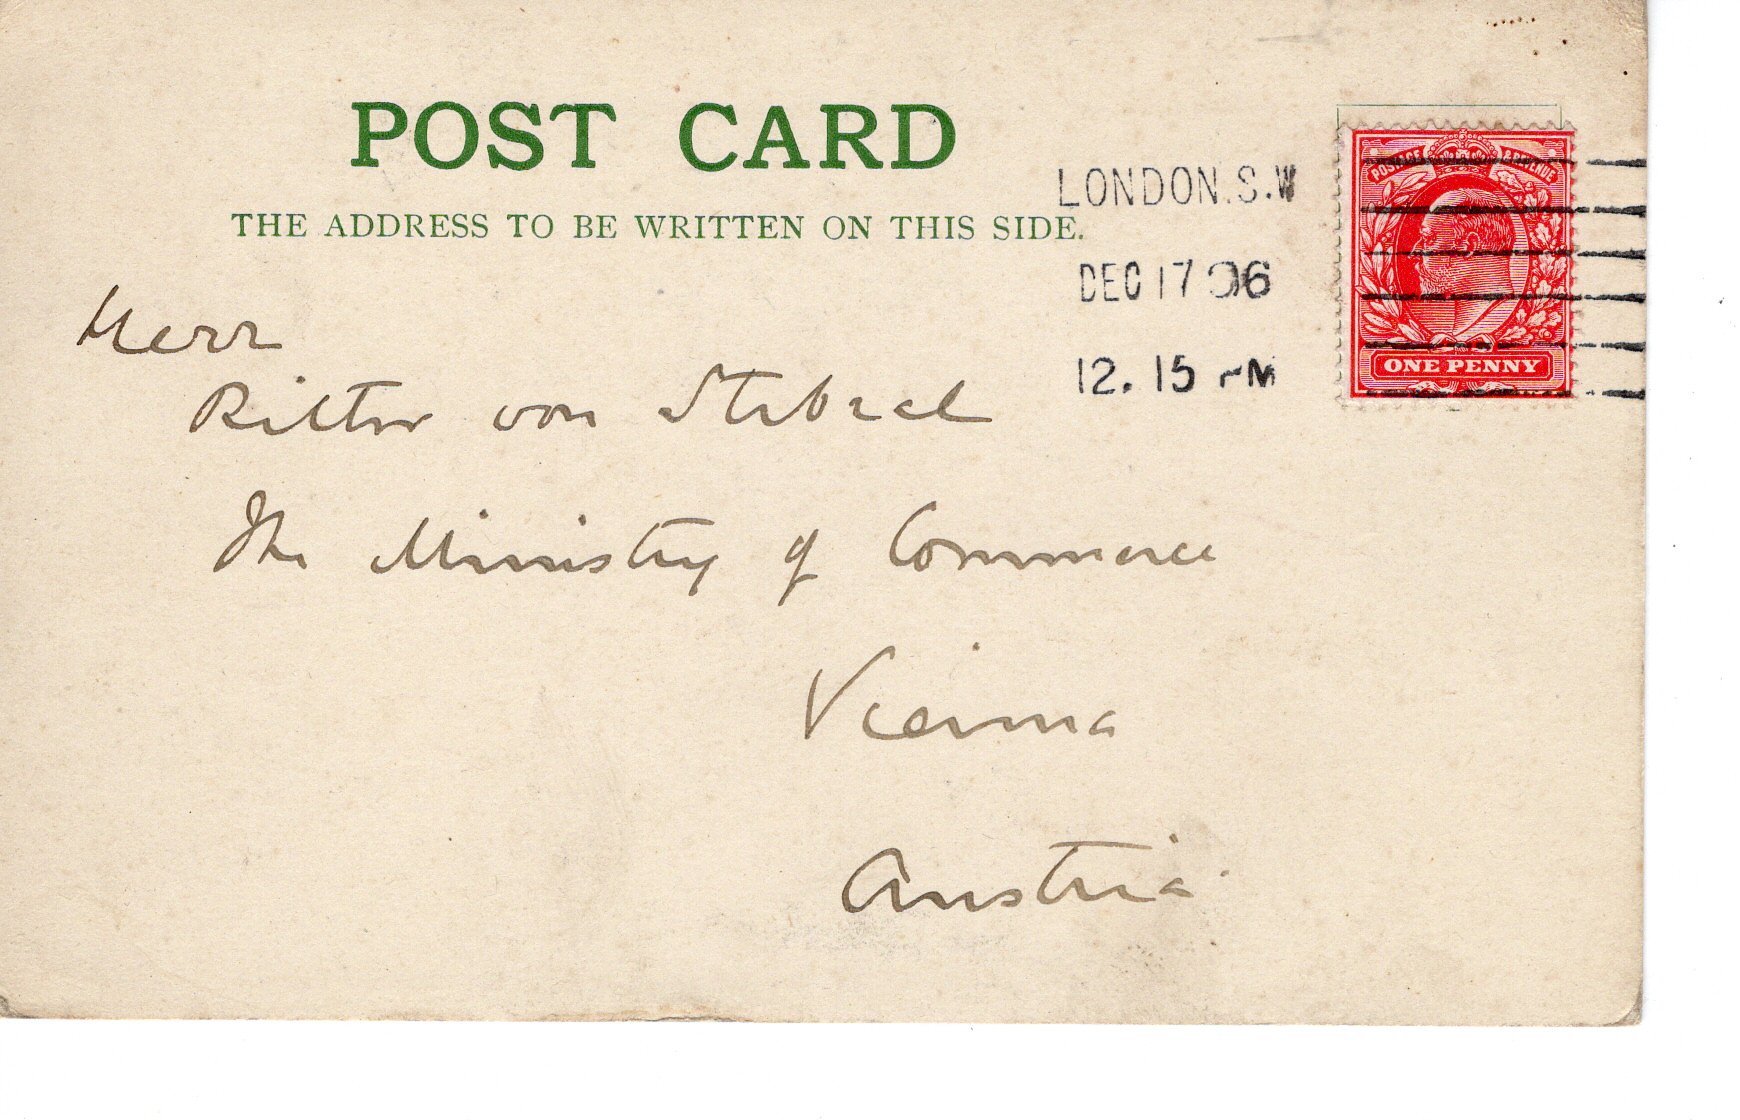 POST CARD
THE ADDRESS TO BE WRITTEN ON THIS SIDE.
LONDON.S.W
DEC 17 06
12.15 PM
POSTAGE & REVENUE
ONE PENNY
Herr
Ritter von Stibral
The Ministry of Commerce
Vienna
Austria